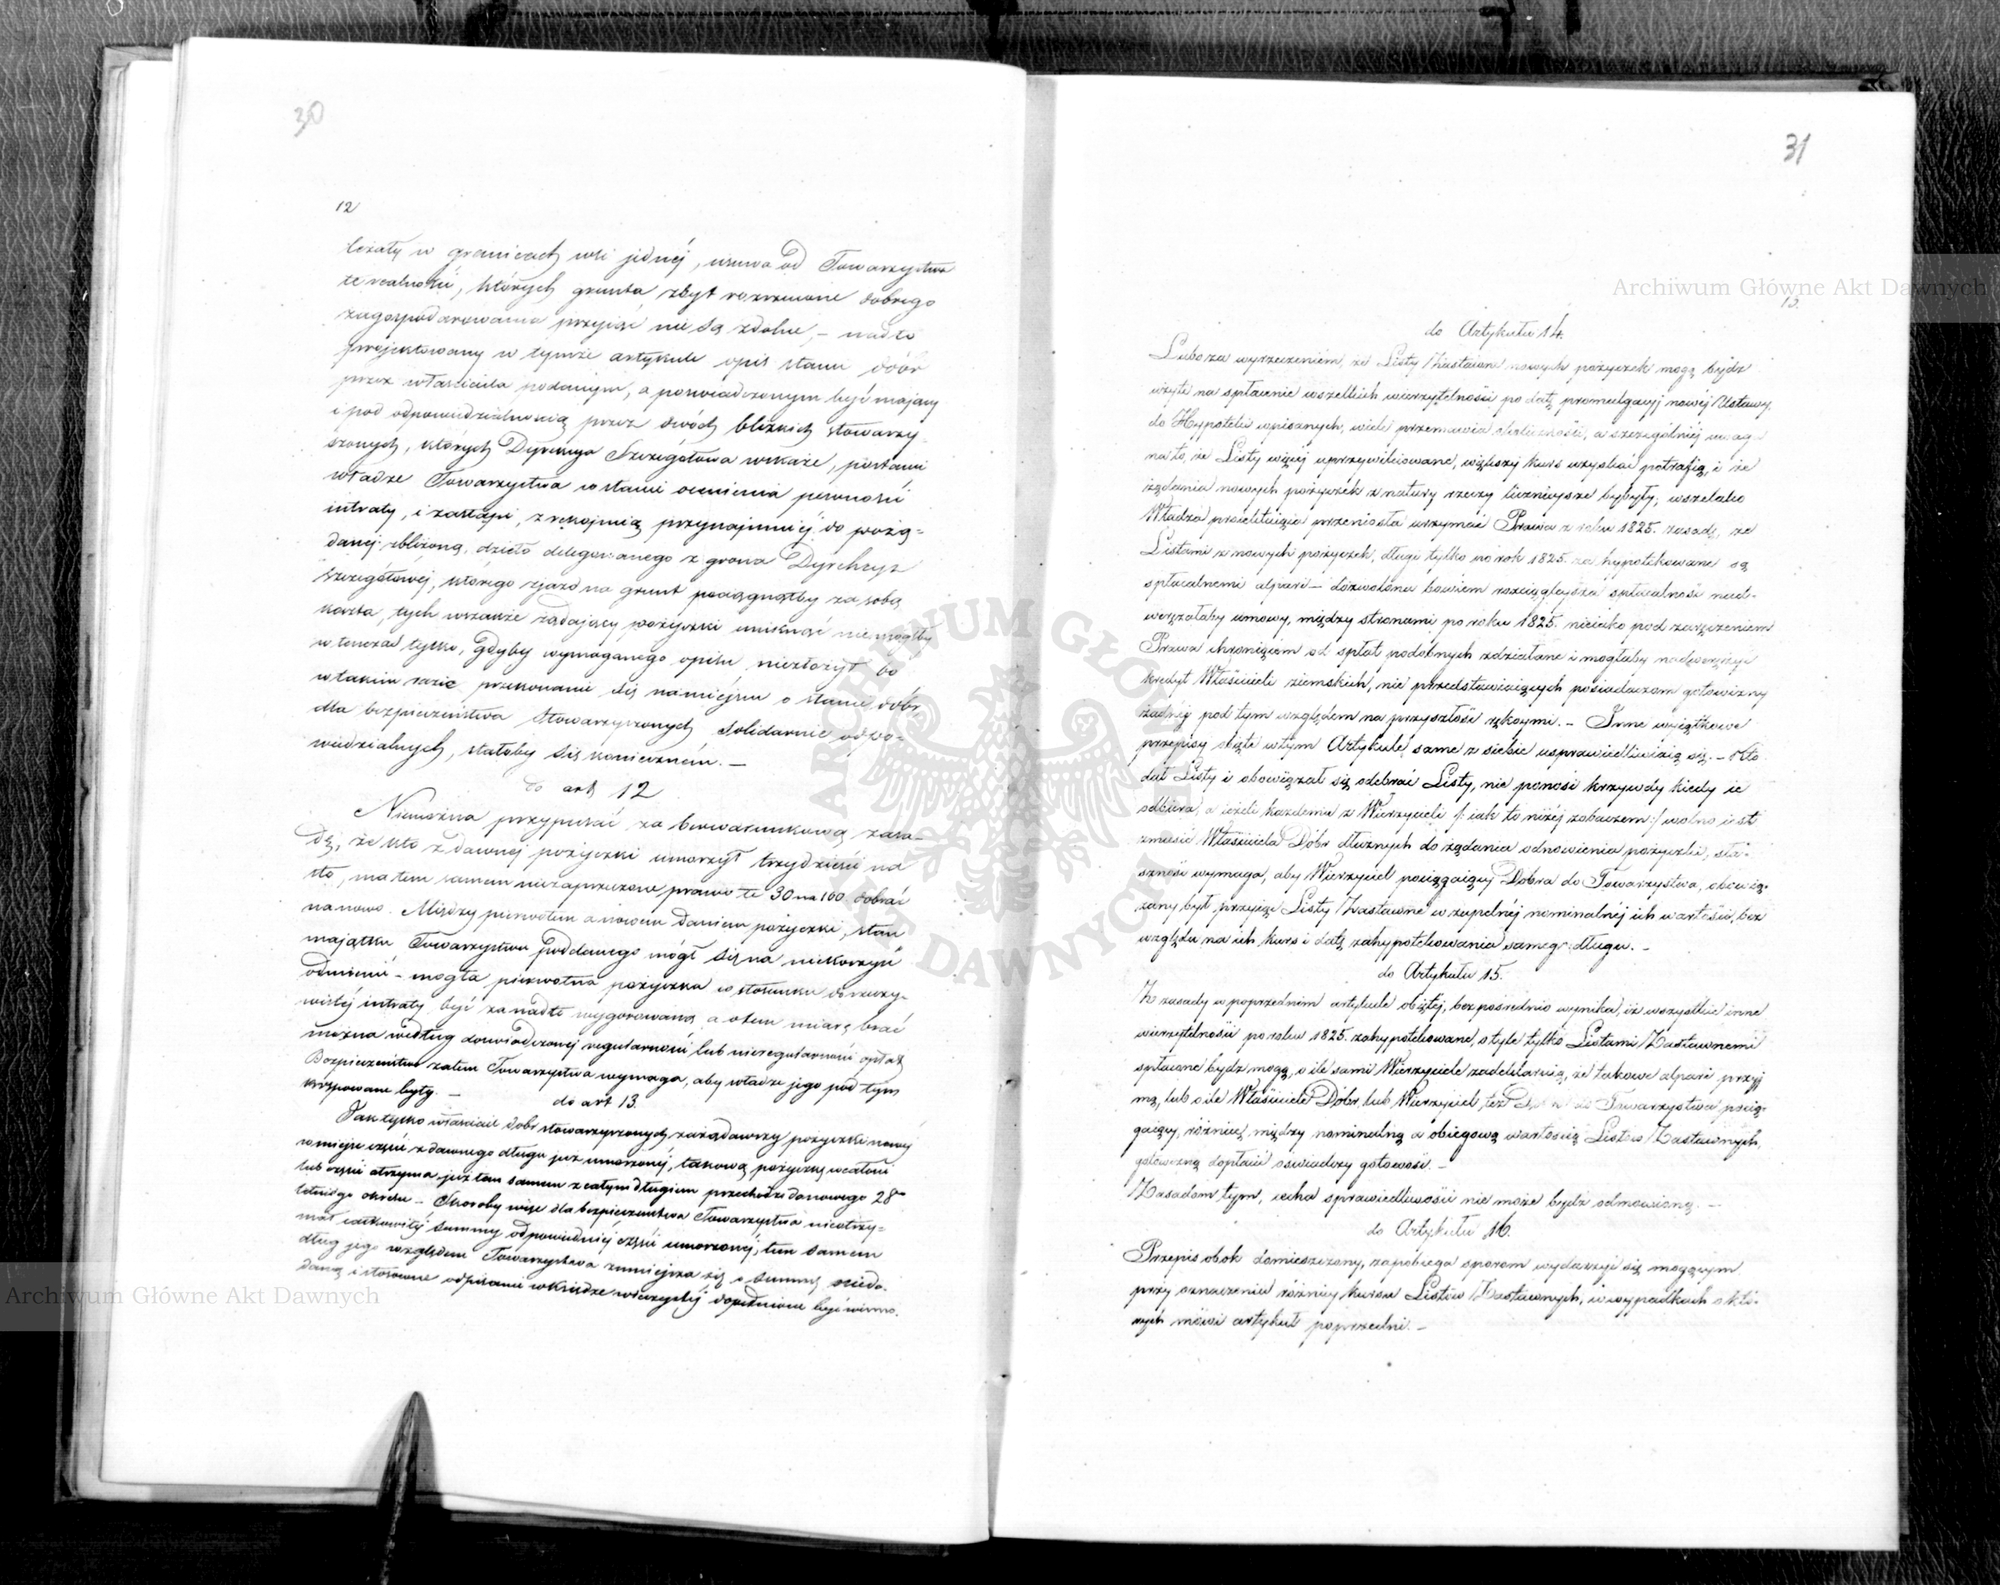 30
12
leżały w granicach wsi jednéj, usuwa od Towarzystwa
te realności, których grunta zbyt rozrzucone dobrego
zagospodarowania przyjąć nie są zdolne, – nadto
projektowany w tymże artykule opis stanu dóbr
przez właściciela podanym, a poświadczonym być mający
i pod odpowiedzialnością przez dwóch blizkich stowarzy-
szonych, których Dyrekcya Szczegółowa wskaże, postawi
władze Towarzystwa w stanie ocenienia pewności
intraty, i zastąpi, z rękojmią przynajmniéj do pożą-
danéj zbliżoną, dzieło delegowanego z grona Dyrekcyi
Szczegółowéj, którego zjazd na grunt pociągnąłby za sobą
koszta, tych wszakże żądający pożyczki uniknąć nie mógłby
wtenczas tylko, gdyby wymaganego opisu niezłożył bo
w takim razie przekonanie się na miejscu o stanie dóbr
dla bezpieczeństwa Stowarzyszonych solidarnie odpo-
wiedzialnych, stałoby się konieczném. –
do art 12
Niemożna przypuścić za bezwarunkową zasa-
dę, że kto z dawnej pożyczki umorzył trzydzieści na
sto, ma tem samem niezaprzeczone prawo te 30 na 100 dobrać
na nowo. Między pierwotem a nowem daniem pożyczki, stan
majątku Towarzystwu poddanego mógł się na niekorzyść
odmienić – mogła pierwotna pożyczka w stosunku do rzeczy-
wistéj intraty być zanadto wygórowaną, a o tem miarę brać
można według doświadczonej regularności lub nieregularności opłat
Bezpieczeństwo zatem Towarzystwa wymaga, aby władze jego pod tym
krępowane były. –
do art 13.
Jak tylko właściciel dóbr stowarzyszonych zażądawszy pożyczki nowéj
w miejsce części z dawnego długu już umorzonéj, takową pożyczkę w całości
lub części otrzyma, już tem samem z całym długiem przechodzi do nowego 28mio
letniego okresu – Skoroby więc dla bezpieczeństwa Towarzystwa nieotrzy-
mał całkowitéj summy odpowiedniéj części umorzonéj, tem samem
dług jego względem Towarzystwa zmniejsza się o summę niedo-
daną i stosowne odpisanie w księdze wieczystéj dopełnione być winno.
31
13.
do Artykułu 14.
Lubo za wyrzeczeniem, że Listy Zastawne nowych pożyczek mogą bydź
użyte na spłacenie wszelkich wierzytelności po datę promulgacyj nowéj Ustawy
do Hypoteki wpisanych, wiele przemawia okoliczności, a szczególniéj uwaga
na to, że Listy więcéj uprzywilejowane, większy kurs uzyskać potrafią, i że
żądania nowych pożyczek z natury rzeczy liczniejsze byłyby, wszelako
Władza przeniosła utrzymać Prawa z roku 1825. zasadę, że
Listami z nowych pożyczek, długi tylko po rok 1825. zahypotekowane są
spłacalnemi alpari – dozwolona bowiem rozciąglejsza spłacalność nad-
werężałaby umowy, między stronami po roku 1825. niejako pod zaręczeniem
Prawa chroniącem od spłat podobnych zdziałane i mogłaby nadwerężyć
kredyt Właścicieli ziemskich, nie przedstawiających posiadaczom gotowizny
żadnéj pod tym względem na przyszłość rękojmi. – Inne wyjątkowe
przepisy objęte w tym Artykule same z siebie usprawiedliwiają się. – Kto
dał Listy i obowiązał się odebrać Listy, nie ponosi krzywdy kiedy je
odbiera, a jeżeli każdemu z Wierzycieli /: jak to niżéj zobaczem :/ wolno jest
zmusić Właściciela Dóbr dłużnych do żądania odnowienia pożyczki, słu-
szność wymaga, aby Wierzyciel pociągający Dobra do Towarzystwa, obowią-
zany był przyjąć Listy Zastawne w zupełnéj nominalnéj ich wartości, bez
względu na ich kurs i datę zahypotekowania samego długu. –
do Artykułu 15.
Z zasady w poprzednim artykule objętéj, bezpośrednio wynika, iż wszystkie inne
wierzytelności po roku 1825. zahypotekowane, o tyle tylko Listami Zastawnemi
spłacone bydź mogą, o ile sami Wierzyciele zadeklarują, że takowe alpari przyj
mą, lub o ile Właściciele Dóbr, lub Wierzyciel też Dobra do Towarzystwa pocią-
gający, różnicę między nominalną a obiegową wartością Listów Zastawnych,
gotowizną dopłacić oświadczy gotowość. –
Zasadom tym, cecha sprawiedliwości nie może bydź odmówioną. –
do Artykułu 16.
Przepis obok domieszczony, zapobiega sporom wydarzyć się mogącym
przy oznaczeniu różnicy kursu Listów Zastawnych, w wypadkach o któ-
rych mówi artykuł poprzedni. –
Archiwum Główne Akt Dawnych
Archiwum Główne Akt Dawnych
ARCHIWUM GŁÓWNE AKT DAWNYCH